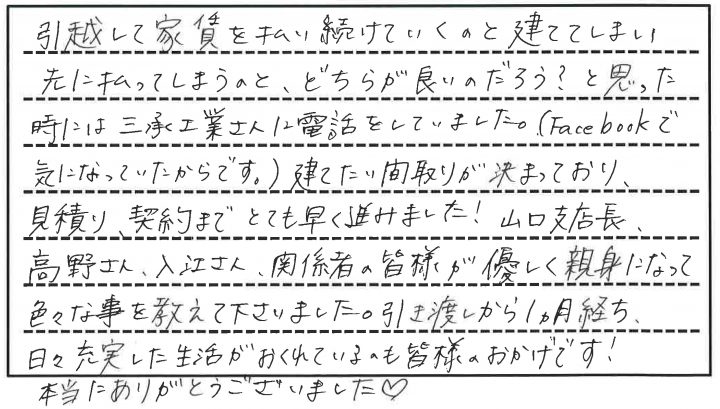 引越しして家賃を払い続けていくのと建ててしまい
先に払ってしまうのと、どちらが良いのだろう？と思った
時には三承工業さんに電話をしていました。（Facebookで
気になっていたからです。）建てたい間取りが決まっており、
見積り、契約までとても早く進みました！山口支店長、
高野さん、入江さん、関係者の皆様が優しく親身になって
色々な事を教えて下さいました。引き渡しから1ヵ月経ち、
日々充実した生活がおくれているのも皆様のおかげです！
本当にありがとうございました♡